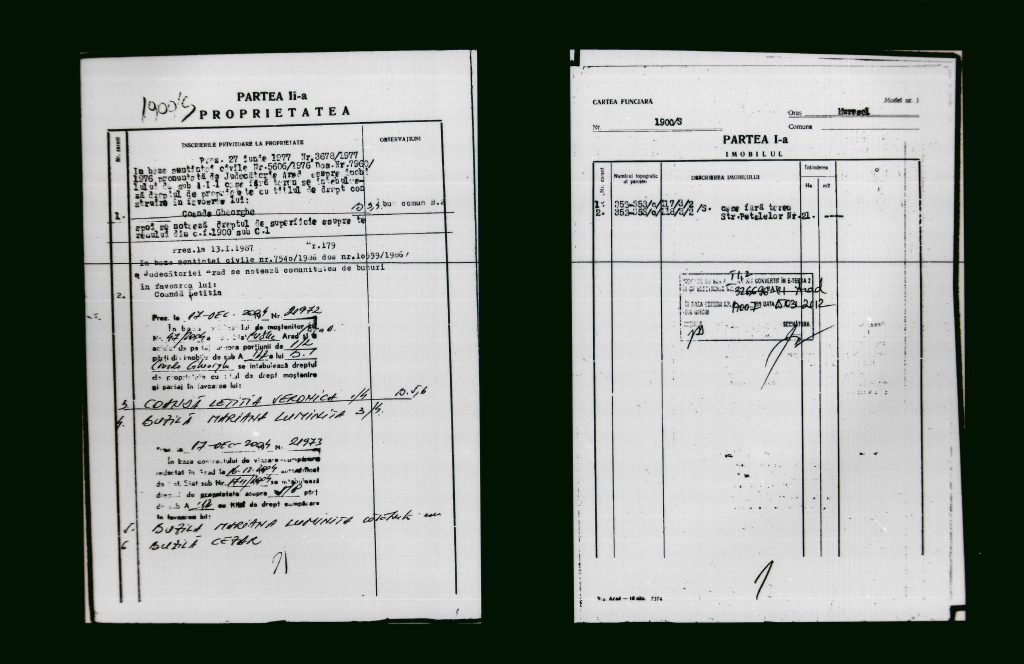 1900/S
PARTEA II-a
PROPRIETATEA
Nr. curent
ÎNSCRIERILE PRIVITOARE LA PROPRIETATE
OBSERVAȚIUNI
Prez. 27 iunie 1977 Nr. 3678/1977
In baza sentintei civile Nr.5606/1976 Dos.Nr.7960/
1976 pronuntată de Judecătoria Arad asupra imobi
lului de sub A-I-1 case fără teren se întabulea-
ză dreptul de proprietate cu titlul de drept con
struire în favoarea lui:
1. Coanda Gheorghe
B 3,4 bun comun B.2
apoi se notează dreptul de superficie asupra te
renului din c.f.1900 sub C-1
Prez.la 13.I.1987 Nr.179
In baza sentintei civile nr.7540/1986 dos nr.10599/1986
a Judecătoriei Arad se notează comunitatea de bunuri
în favoarea lui:
2. Coandă Letitia
Prez. la 17-DEC-2004 Nr. 21972
În baza lui de moștenitor
Nr. 47/2004 Arad și a
actului de partaj asupra porțiunii de 1/2
părți din imobilul de sub A a lui B.1
Coanda Gheorghe se întabulează dreptul
de proprietate cu titlul de drept moștenire
și partaj în favoarea lui:
3 COANDĂ LETITIA VERONICA 1/4 B.5,6
4. BUZILĂ MARIANA LUMINITA 3/4.
la 17-DEC-2004 Nr. 21973
În baza contractului de vânzare-cumpărare
redactat în Arad la 16-12-2004 autentificat
de not. Stat sub Nr. 1711/2004 se intabulează
dreptul de proprietate asupra părți
de sub A cu titlul de drept cumpărare
în favoarea lui:
5. BUZILĂ MARIANA LUMINITA
6 BUZILĂ CEZAR
CARTEA FUNCIARA
Model nr. 1
Oraș Muresel
Comuna
Nr. 1900/S
PARTEA I-a
IMOBILUL
Nr. curent
Numărul topografic al parcelei
DESCRIEREA IMOBILULUI
Întinderea
Ha
m2
1. 353-353/a/117/3/2
2. 353-353/a/118/3/2 /S. case fără teren
Str.Petalelor Nr.21. ---
CONVERTIT IN E-TERRA 2
Arad
DATA 15/03/2012
SEMNATURA
Tip. Arad — 7374